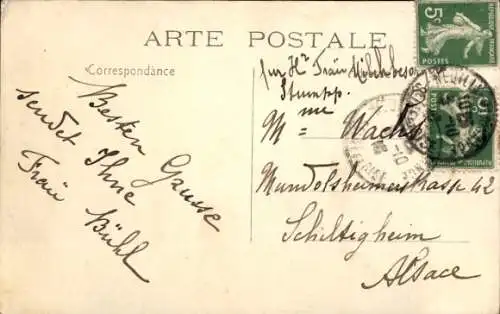 ARTE POSTALE
Correspondance
Besten Grusse
sendet Ihne
Frau Bühl
für Hr Frau
Stumpp.
Mme Wachs
Mundolsheimerstrasse 42
Schiltigheim
Alsace
5c
POSTES